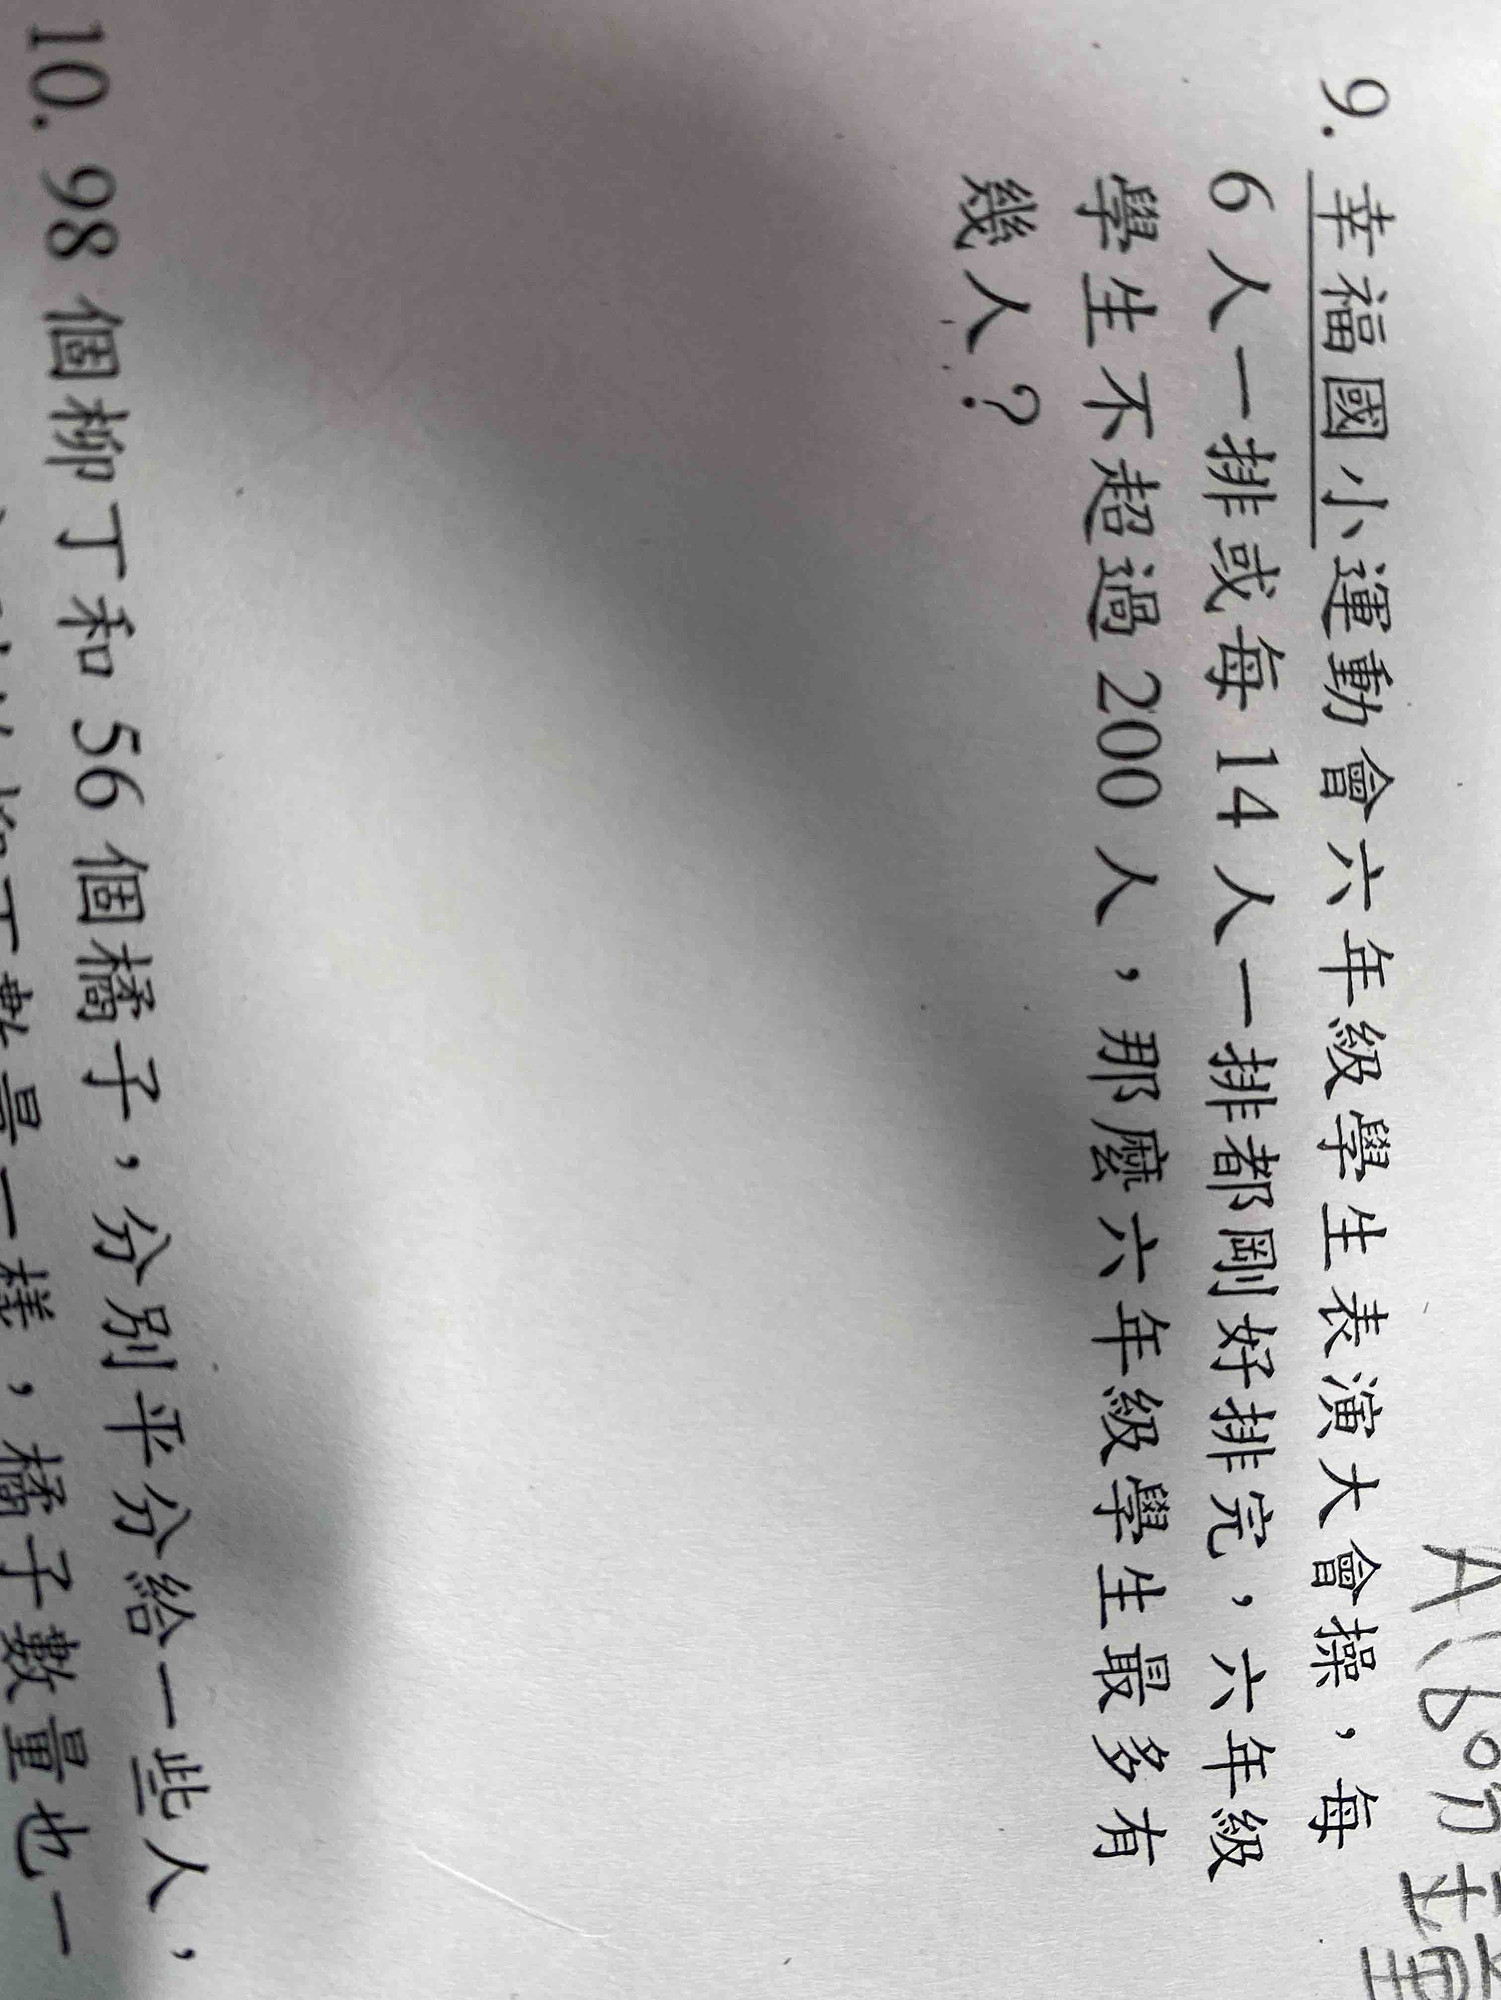 9. 幸福國小運動會六年級學生表演大會操，每
6人一排或每14人一排都剛好排完，六年級
學生不超過200人，那麼六年級學生最多有
幾人？
10. 98個柳丁和56個橘子，分別平分給一些人，
數量一樣，橘子數量也一